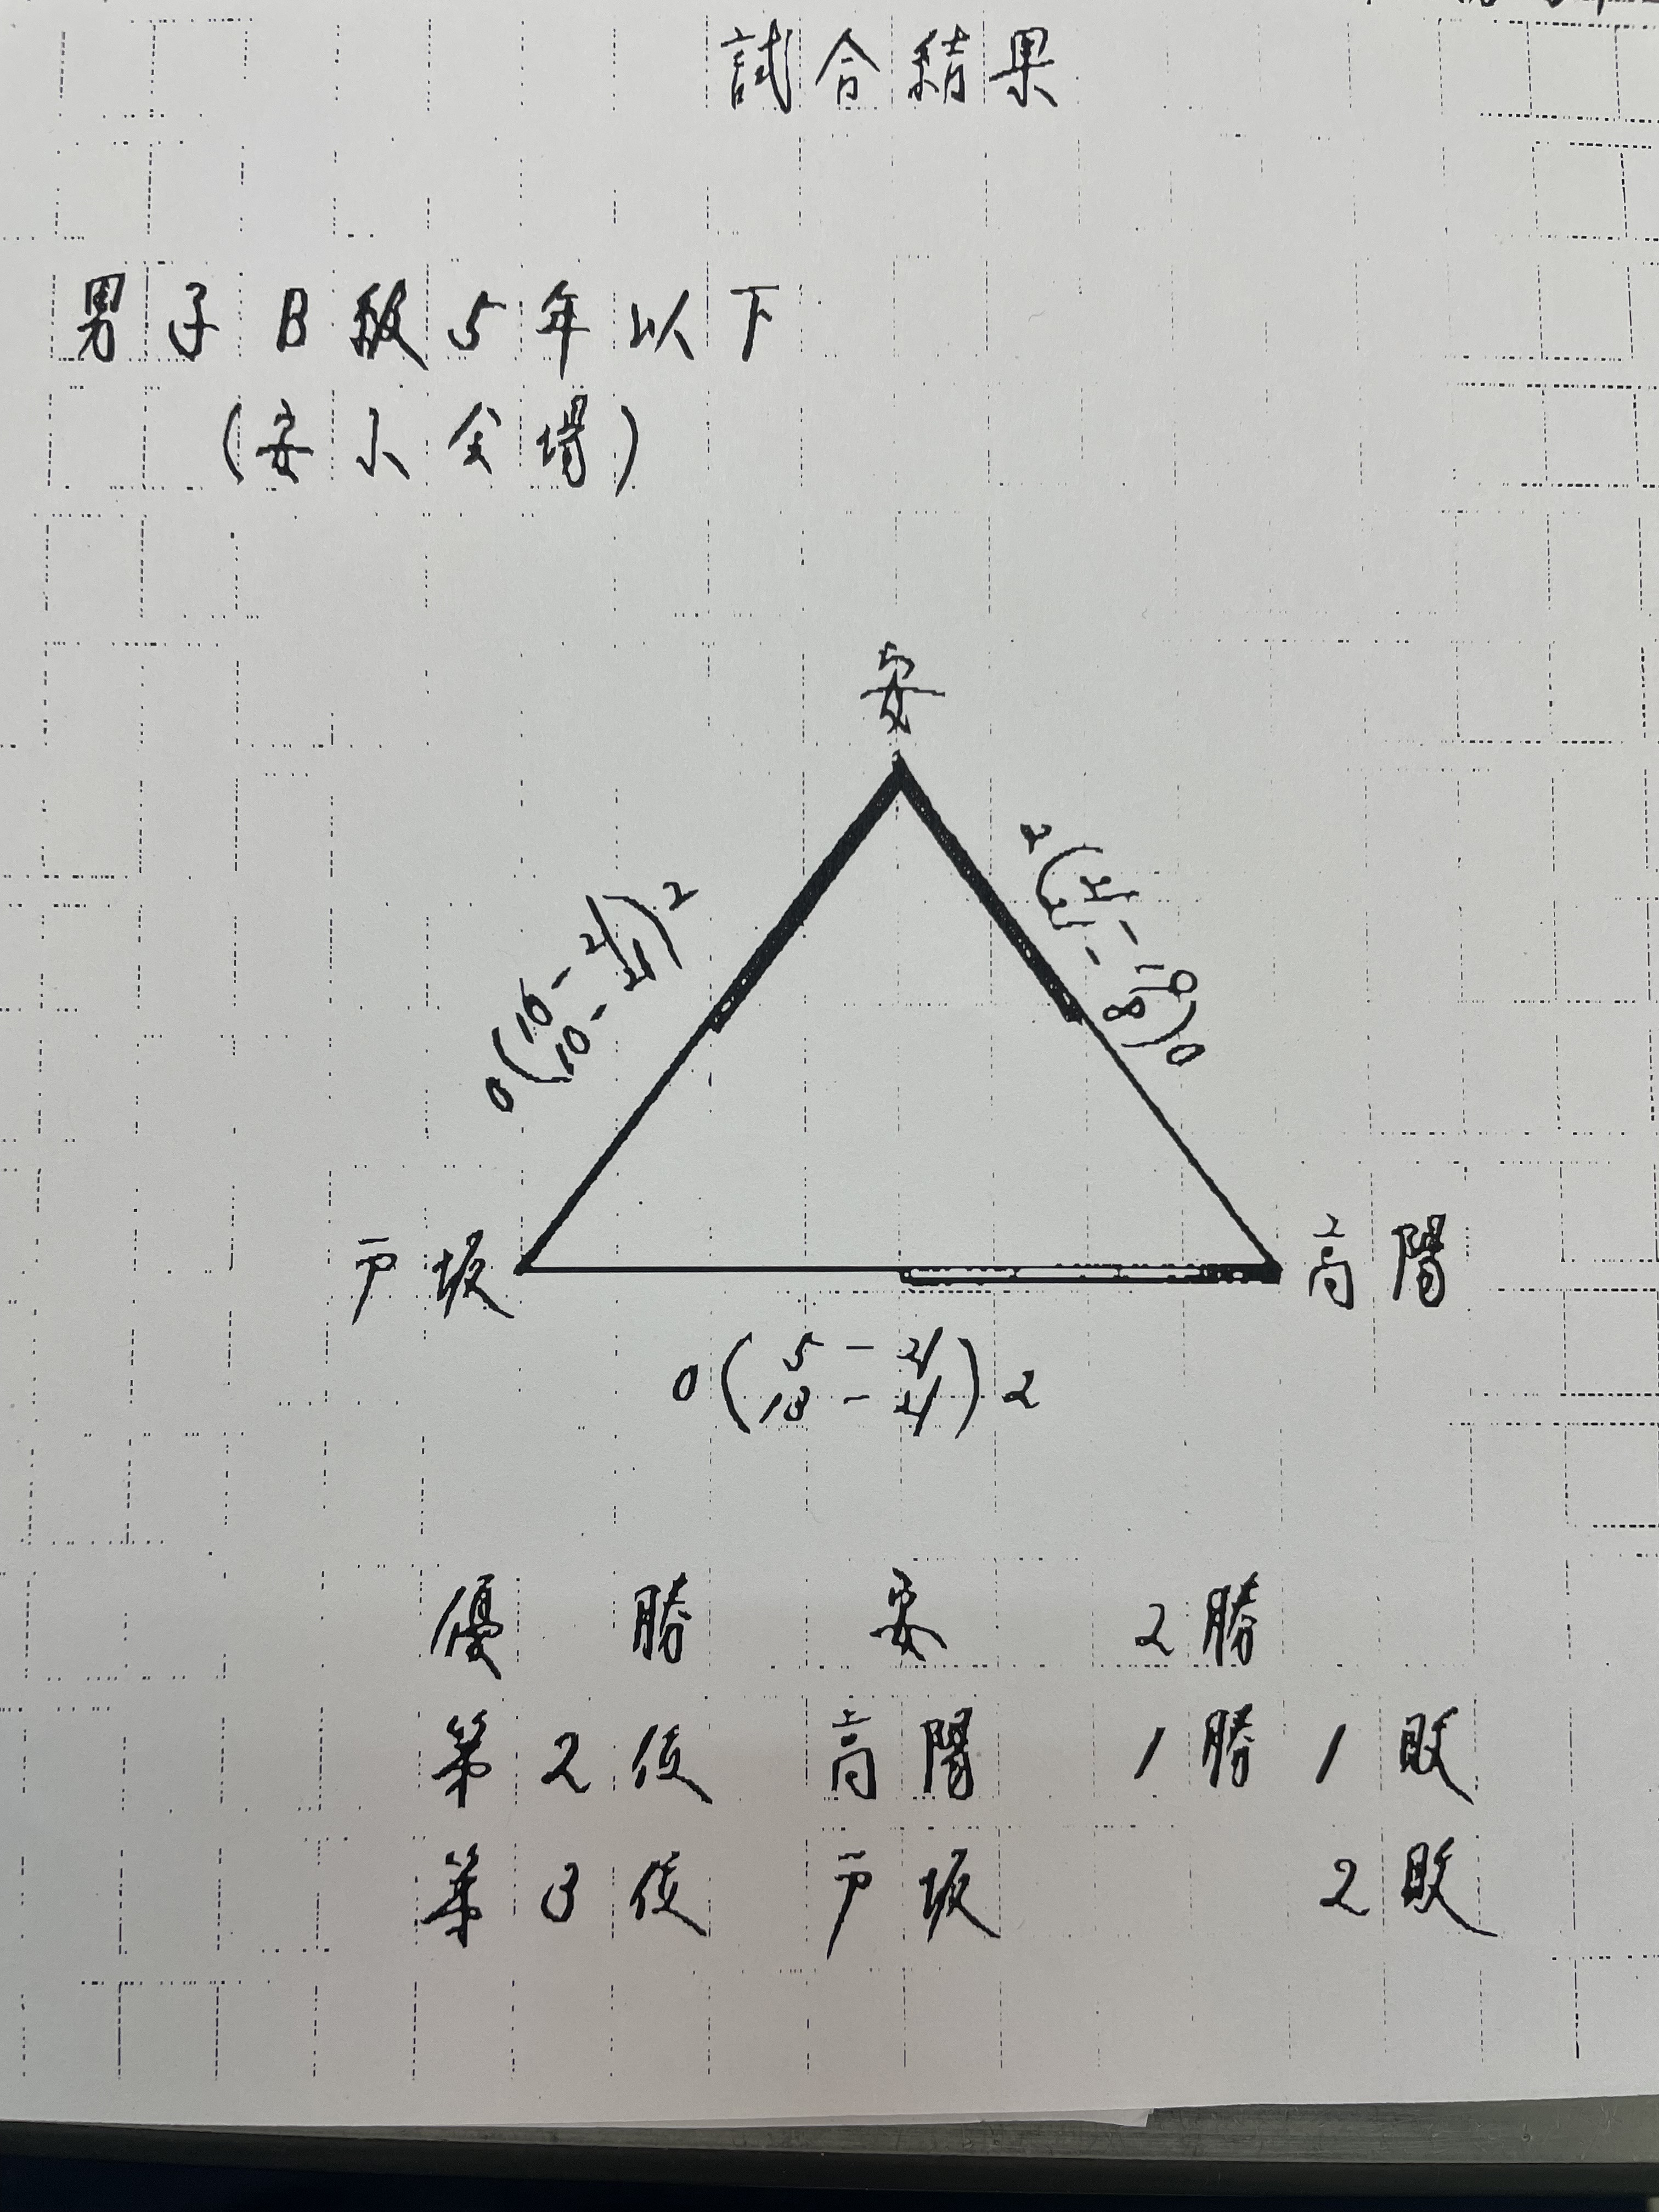 試合結果
男子B級5年以下
(安小会場)
安
0(16-21 10-21)2
2(21-10 21-8)0
戸坂
高陽
0(5-21 13-21)2
優勝 安 2勝
第2位 高陽 1勝1敗
第3位 戸坂 2敗